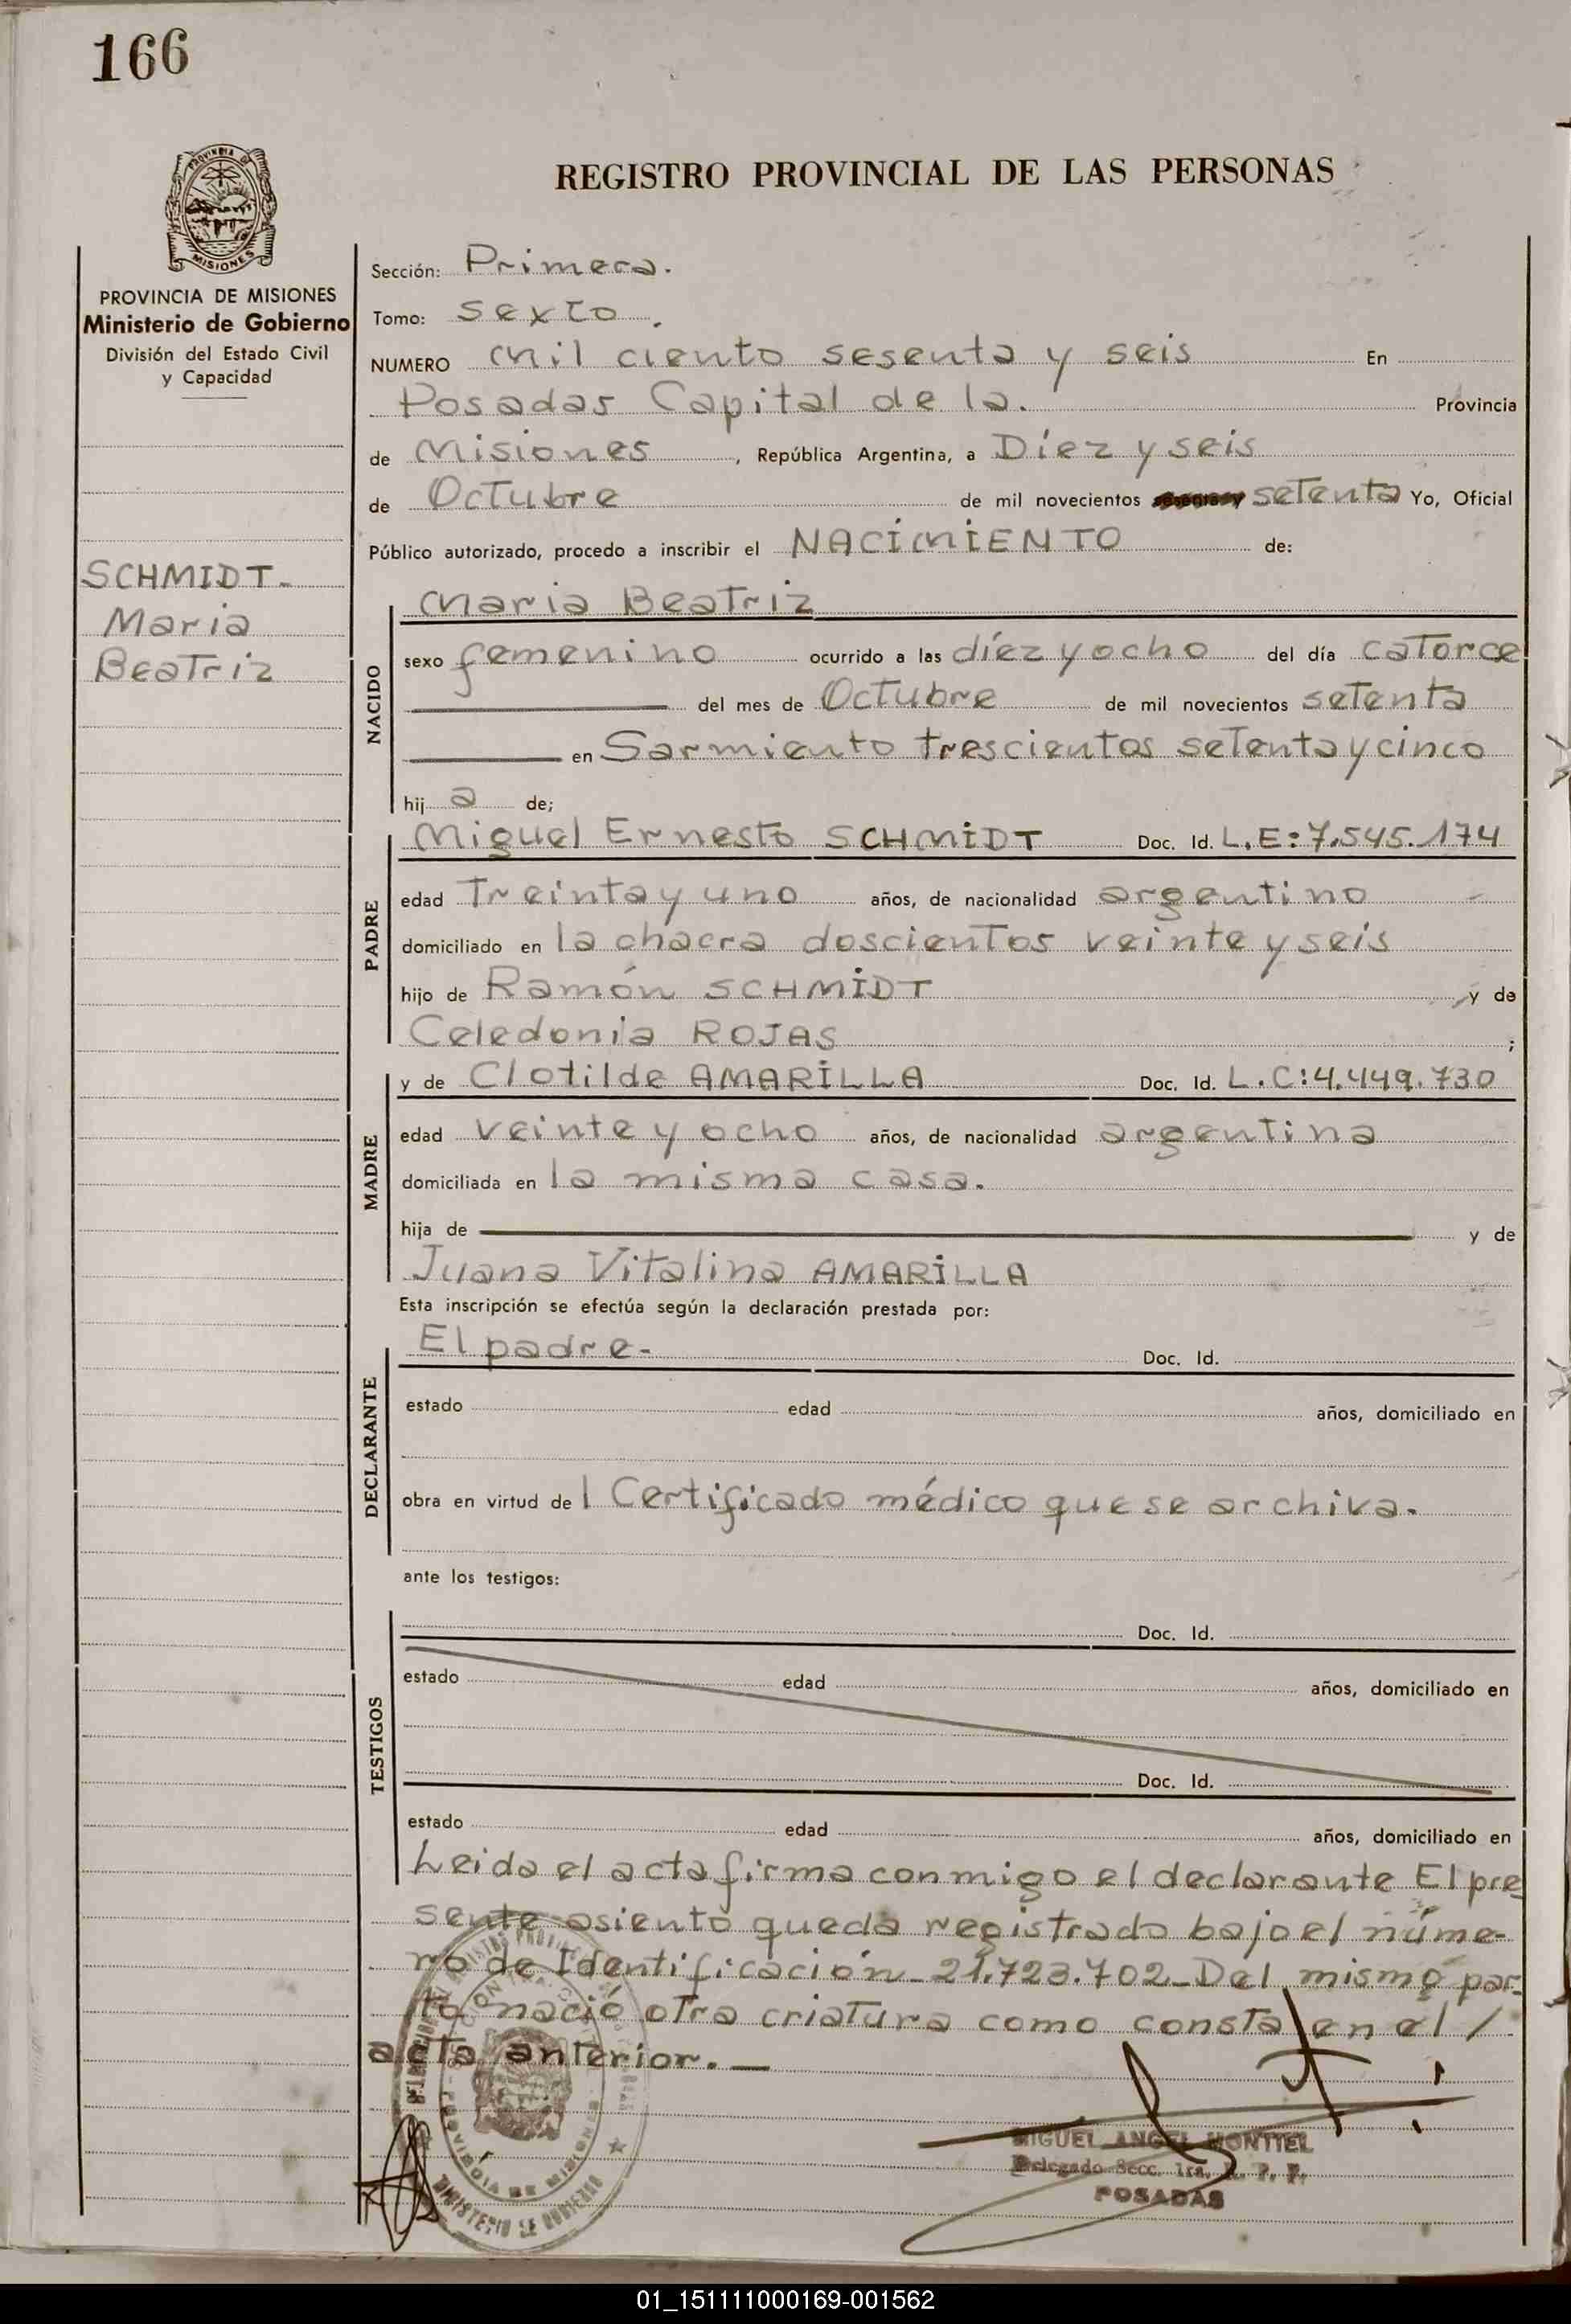 166
PROVINCIA DE MISIONES
Ministerio de Gobierno
División del Estado Civil
y Capacidad
SCHMIDT.
Maria
Beatriz
REGISTRO PROVINCIAL DE LAS PERSONAS
Sección: Primera.
Tomo: sexto.
NUMERO mil ciento sesenta y seis En
Posadas Capital de la. Provincia
de Misiones, República Argentina, a Diez y seis
de Octubre de mil novecientos setenta Yo, Oficial
Público autorizado, procedo a inscribir el NACIMIENTO de:
NACIDO
Maria Beatriz
sexo femenino ocurrido a las diez y ocho del día catorce
del mes de Octubre de mil novecientos setenta
en Sarmiento trescientos setenta y cinco
hij a de;
PADRE
Miguel Ernesto SCHMIDT Doc. Id. L.E: 7.545.174
edad Treinta y uno años, de nacionalidad argentino
domiciliado en la chacra doscientos veinte y seis
hijo de Ramón SCHMIDT y de
Celedonia ROJAS ;
MADRE
y de Clotilde AMARILLA Doc. Id. L.C: 4.449.730
edad veinte y ocho años, de nacionalidad argentina
domiciliada en la misma casa.
hija de y de
Juana Vitalina AMARILLA
Esta inscripción se efectúa según la declaración prestada por:
DECLARANTE
El padre. Doc. Id.
estado edad años, domiciliado en
obra en virtud de l Certificado médico que se archiva.
ante los testigos:
TESTIGOS
Doc. Id.
estado edad años, domiciliado en
Doc. Id.
estado edad años, domiciliado en
Leida el acta firma conmigo el declarante El pre
sente asiento queda registrado bajo el núme-
ro de Identificación 21.723.702_Del mismo par-
to nació otra criatura como consta en el /
acta anterior._
MIGUEL ANGEL MONTIEL
Delegado Secc. 1ra. R. P. P.
POSADAS
PROVINCIA DE MISIONES
MINISTERIO DE GOBIERNO
01_151111000169-001562